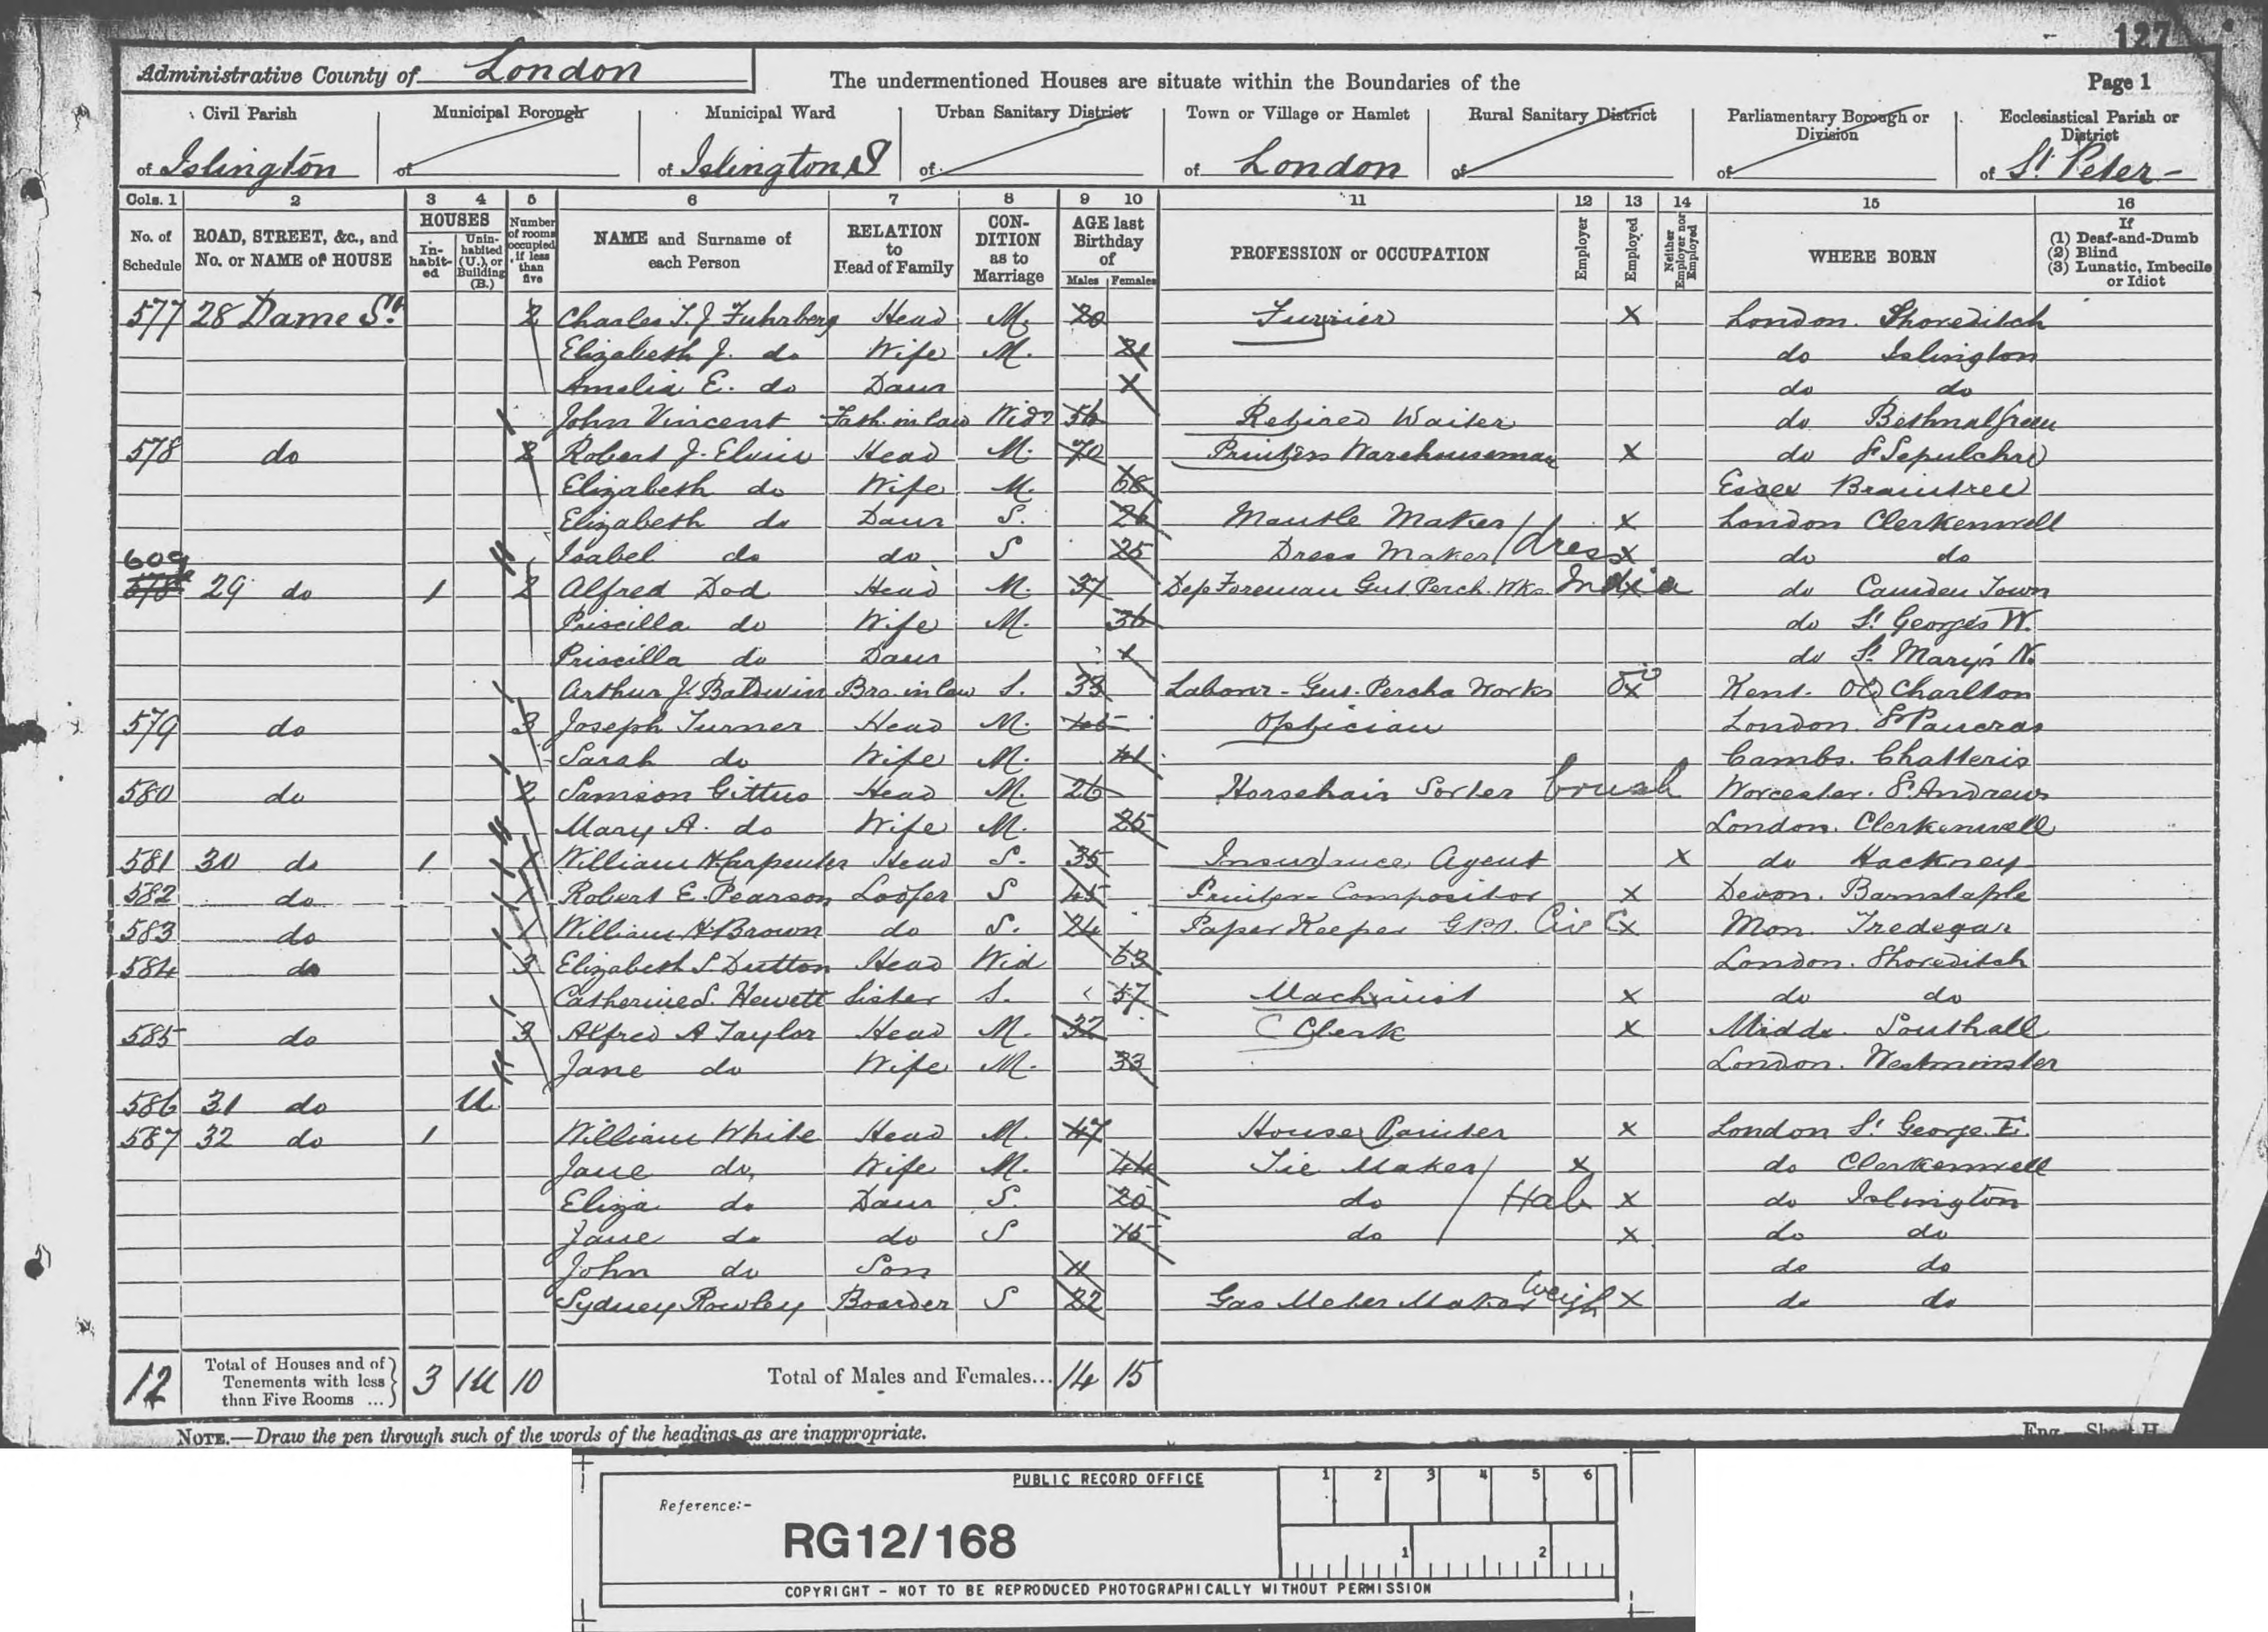 127
Administrative County of London
The undermentioned Houses are situate within the Boundaries of the
Page 1
Civil Parish of Islington
Municipal Borough of
Municipal Ward of Islington S
Urban Sanitary District of
Town or Village or Hamlet of London
Rural Sanitary District of
Parliamentary Borough or Division of
Ecclesiastical Parish or District of St. Peter
Cols. 1 2 3 4 5 6 7 8 9 10 11 12 13 14 15 16
No. of Schedule
ROAD, STREET, &c., and No. or NAME of HOUSE
HOUSES
In-habit-ed
Unin-habited (U.), or Building (B.)
Number of rooms occupied if less than five
NAME and Surname of each Person
RELATION to Head of Family
CON-DITION as to Marriage
AGE last Birthday of
Males Females
PROFESSION or OCCUPATION
Employer
Employed
Neither Employer nor Employed
WHERE BORN
If (1) Deaf-and-Dumb (2) Blind (3) Lunatic, Imbecile or Idiot
577 28 Dame St. 2 Charles T. J. Fuhrberg Head M. 20 Furrier X London. Shoreditch
Elizabeth J. do Wife M. 21 do Islington
Amelia E. do Daur do do
John Vincent Fath. in law Widr 56 Retired Waiter do Bethnal Green
578 do 2 Robert J. Elvin Head M. 70 Printers Warehouseman X do St Sepulchre
Elizabeth do Wife M. 68 Essex Braintree
Elizabeth do Daur S. 26 Mantle Maker X London Clerkenwell
Isabel do do S 25 Dress Maker dress X do do
609
578a 29 do 1 2 Alfred Dod Head M. 37 Dep Foreman Gut. Perch. Wks India X do Camden Town
Priscilla do Wife M. 36 do St. George's W.
Priscilla do Daur do St. Mary's N.
Arthur J. Baldwin Bro. in law S. 33 Labour - Gut. Percha Works X Kent. Charlton
579 do 3 Joseph Turner Head M. Optician London. St Pancras
Sarah do Wife M. 41 Cambs. Chatteris
580 do 2 Samson Gittus Head M. 26 Horsehair Sorter brush Worcester. St. Andrews
Mary A. do Wife M. 25 London. Clerkenwell
581 30 do 1 1 William H. Carpenter Head S. 35 Insurance Agent X do Hackney
582 do 1 Robert E. Pearson Lodger S 45 Printer - Compositor X Devon. Barnstaple
583 do 1 William H. Brown do S. 24 Paper Keeper G.P.O. Civ C X Mon. Tredegar
584 do 3 Elizabeth S. Dutton Head Wid 63 London. Shoreditch
Catherine S. Hewett Sister S. 57 Machinist X do do
585 do 3 Alfred A Taylor Head M. 32 Clerk X Middx. Southall
Jane do Wife M. 33 London. Westminster
586 31 do U
587 32 do 1 William White Head M. 47 House Painter X London St. George. E.
Jane do Wife M. 44 Tie Maker X do Clerkenwell
Eliza do Daur S. 20 do Hab X do Islington
Jane do do S 15 do X do do
John do Son 11 do do
Sydney Rowley Boarder S 22 Gas Meter Maker Weigh X do do
12 Total of Houses and of Tenements with less than Five Rooms ... 3 1U 10 Total of Males and Females... 14 15
NOTE.—Draw the pen through such of the words of the headings as are inappropriate.
Eng.—Sheet H
PUBLIC RECORD OFFICE
1 2 3 4 5 6
Reference:-
RG12/168
1 2
COPYRIGHT - NOT TO BE REPRODUCED PHOTOGRAPHICALLY WITHOUT PERMISSION